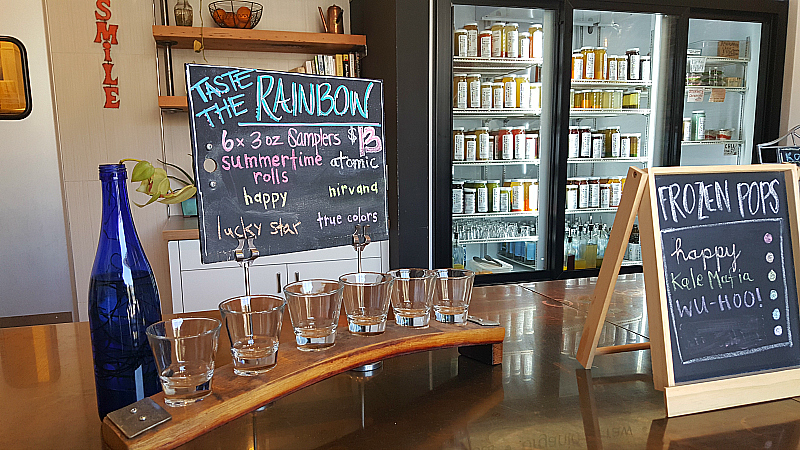 SMILE
TASTE
THE RAINBOW
6 x 3 oz Samplers $13
summertime atomic
rolls
happy nirvana
lucky star true colors
FROZEN POPS
happy
Kale Mafia
WU-HOO!